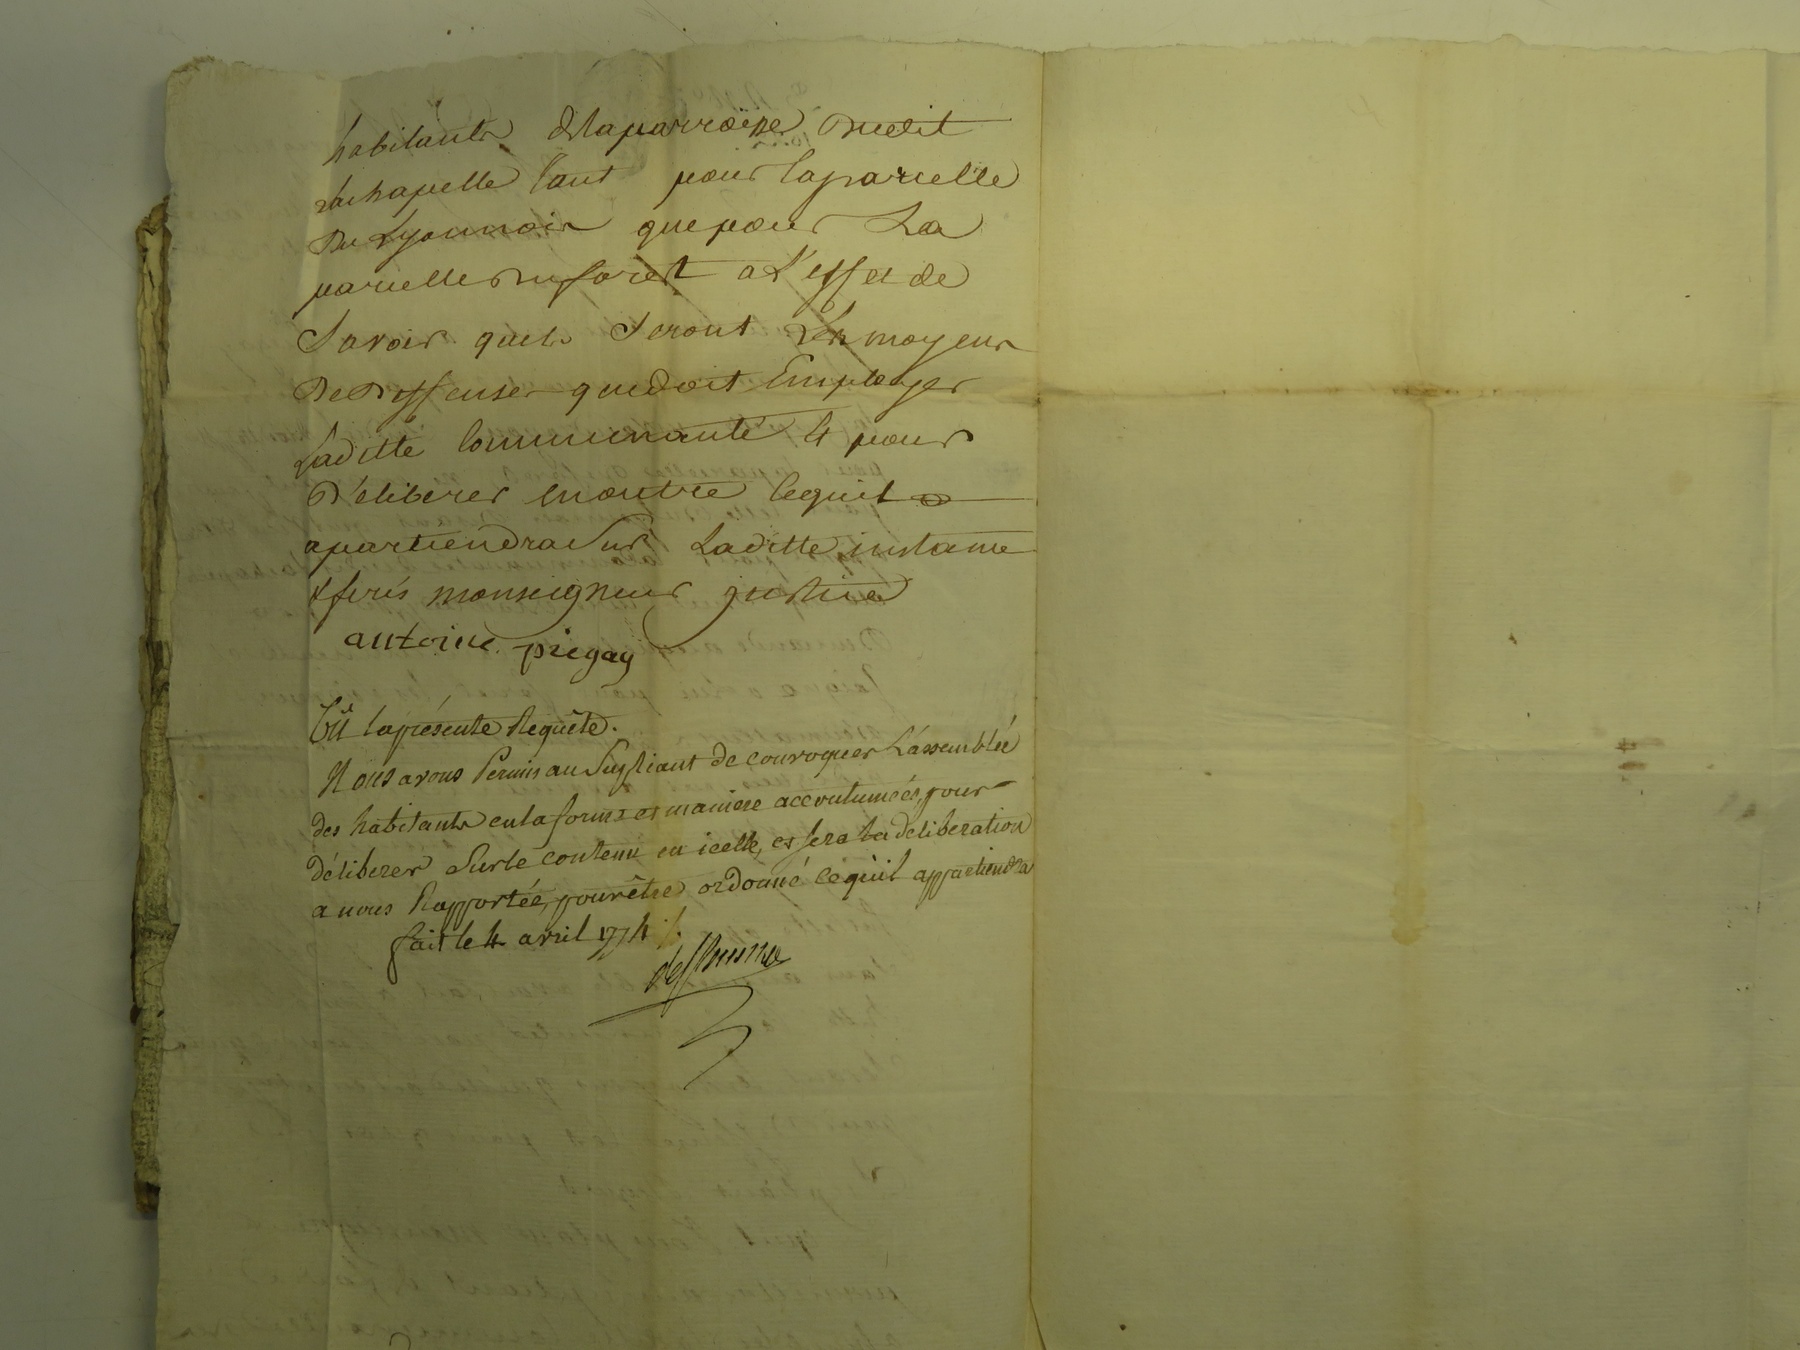 habitants de la parroisse dudit
lachapelle tant pour la parcelle
Du Lyonnois que pour La
parcelle du forest a l'effet de
Savoir quels Seront Les moyens
De Deffense que doit Employer
Laditte Communauté & pour
Déliberer en outre ce quil
apartiendra Sur Laditte instance
& ferés monseigneur justice
antoine piegay
Vû la présente Requête.
Nous avons Permis au Supliant de convoquer L'assemblée
des habitants en la forme et maniere accoutumées, pour
déliberer Sur le contenu en icelle, et sera la deliberation
a nous Rapportée, pour être ordonné ce qu'il appartiendra
fait le 4 avril 1774 /.